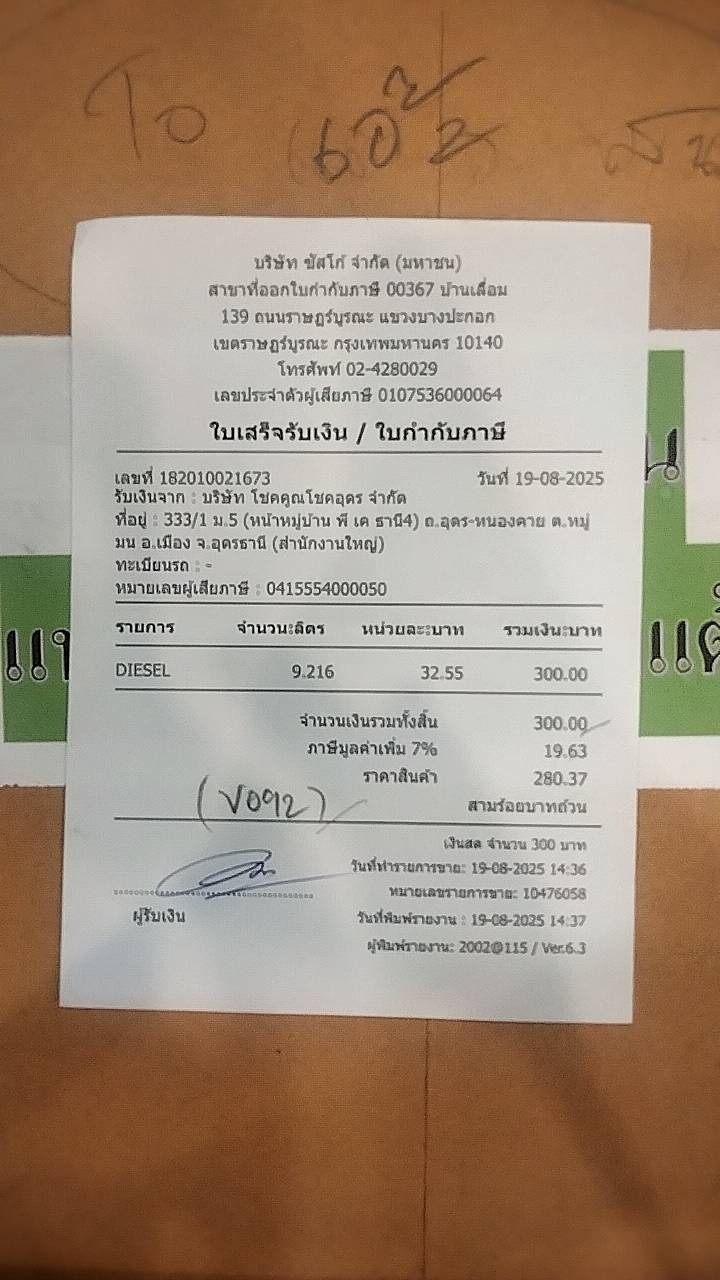 To เอ๊ะ
บริษัท ซัสโก้ จำกัด (มหาชน)
สาขาที่ออกใบกำกับภาษี 00367 บ้านเลื่อม
139 ถนนราษฎร์บูรณะ แขวงบางปะกอก
เขตราษฎร์บูรณะ กรุงเทพมหานคร 10140
โทรศัพท์ 02-4280029
เลขประจำตัวผู้เสียภาษี 0107536000064
ใบเสร็จรับเงิน / ใบกำกับภาษี
เลขที่ 182010021673 วันที่ 19-08-2025
รับเงินจาก : บริษัท โชคคูณโชคอุดร จำกัด
ที่อยู่ : 333/1 ม.5 (หน้าหมู่บ้าน พี เค ธานี4) ถ.อุดร-หนองคาย ต.หมู
มน อ.เมือง จ.อุดรธานี (สำนักงานใหญ่)
ทะเบียนรถ : -
หมายเลขผู้เสียภาษี : 0415554000050
รายการ จำนวน:ลิตร หน่วยละ:บาท รวมเงิน:บาท
DIESEL 9.216 32.55 300.00
จำนวนเงินรวมทั้งสิ้น 300.00
ภาษีมูลค่าเพิ่ม 7% 19.63
ราคาสินค้า 280.37
(V092) สามร้อยบาทถ้วน
เงินสด จำนวน 300 บาท
วันที่ทำรายการขาย: 19-08-2025 14:36
หมายเลขรายการขาย: 10476058
ผู้รับเงิน วันที่พิมพ์รายงาน : 19-08-2025 14:37
ผู้พิมพ์รายงาน: 2002@115 / Ver.6.3